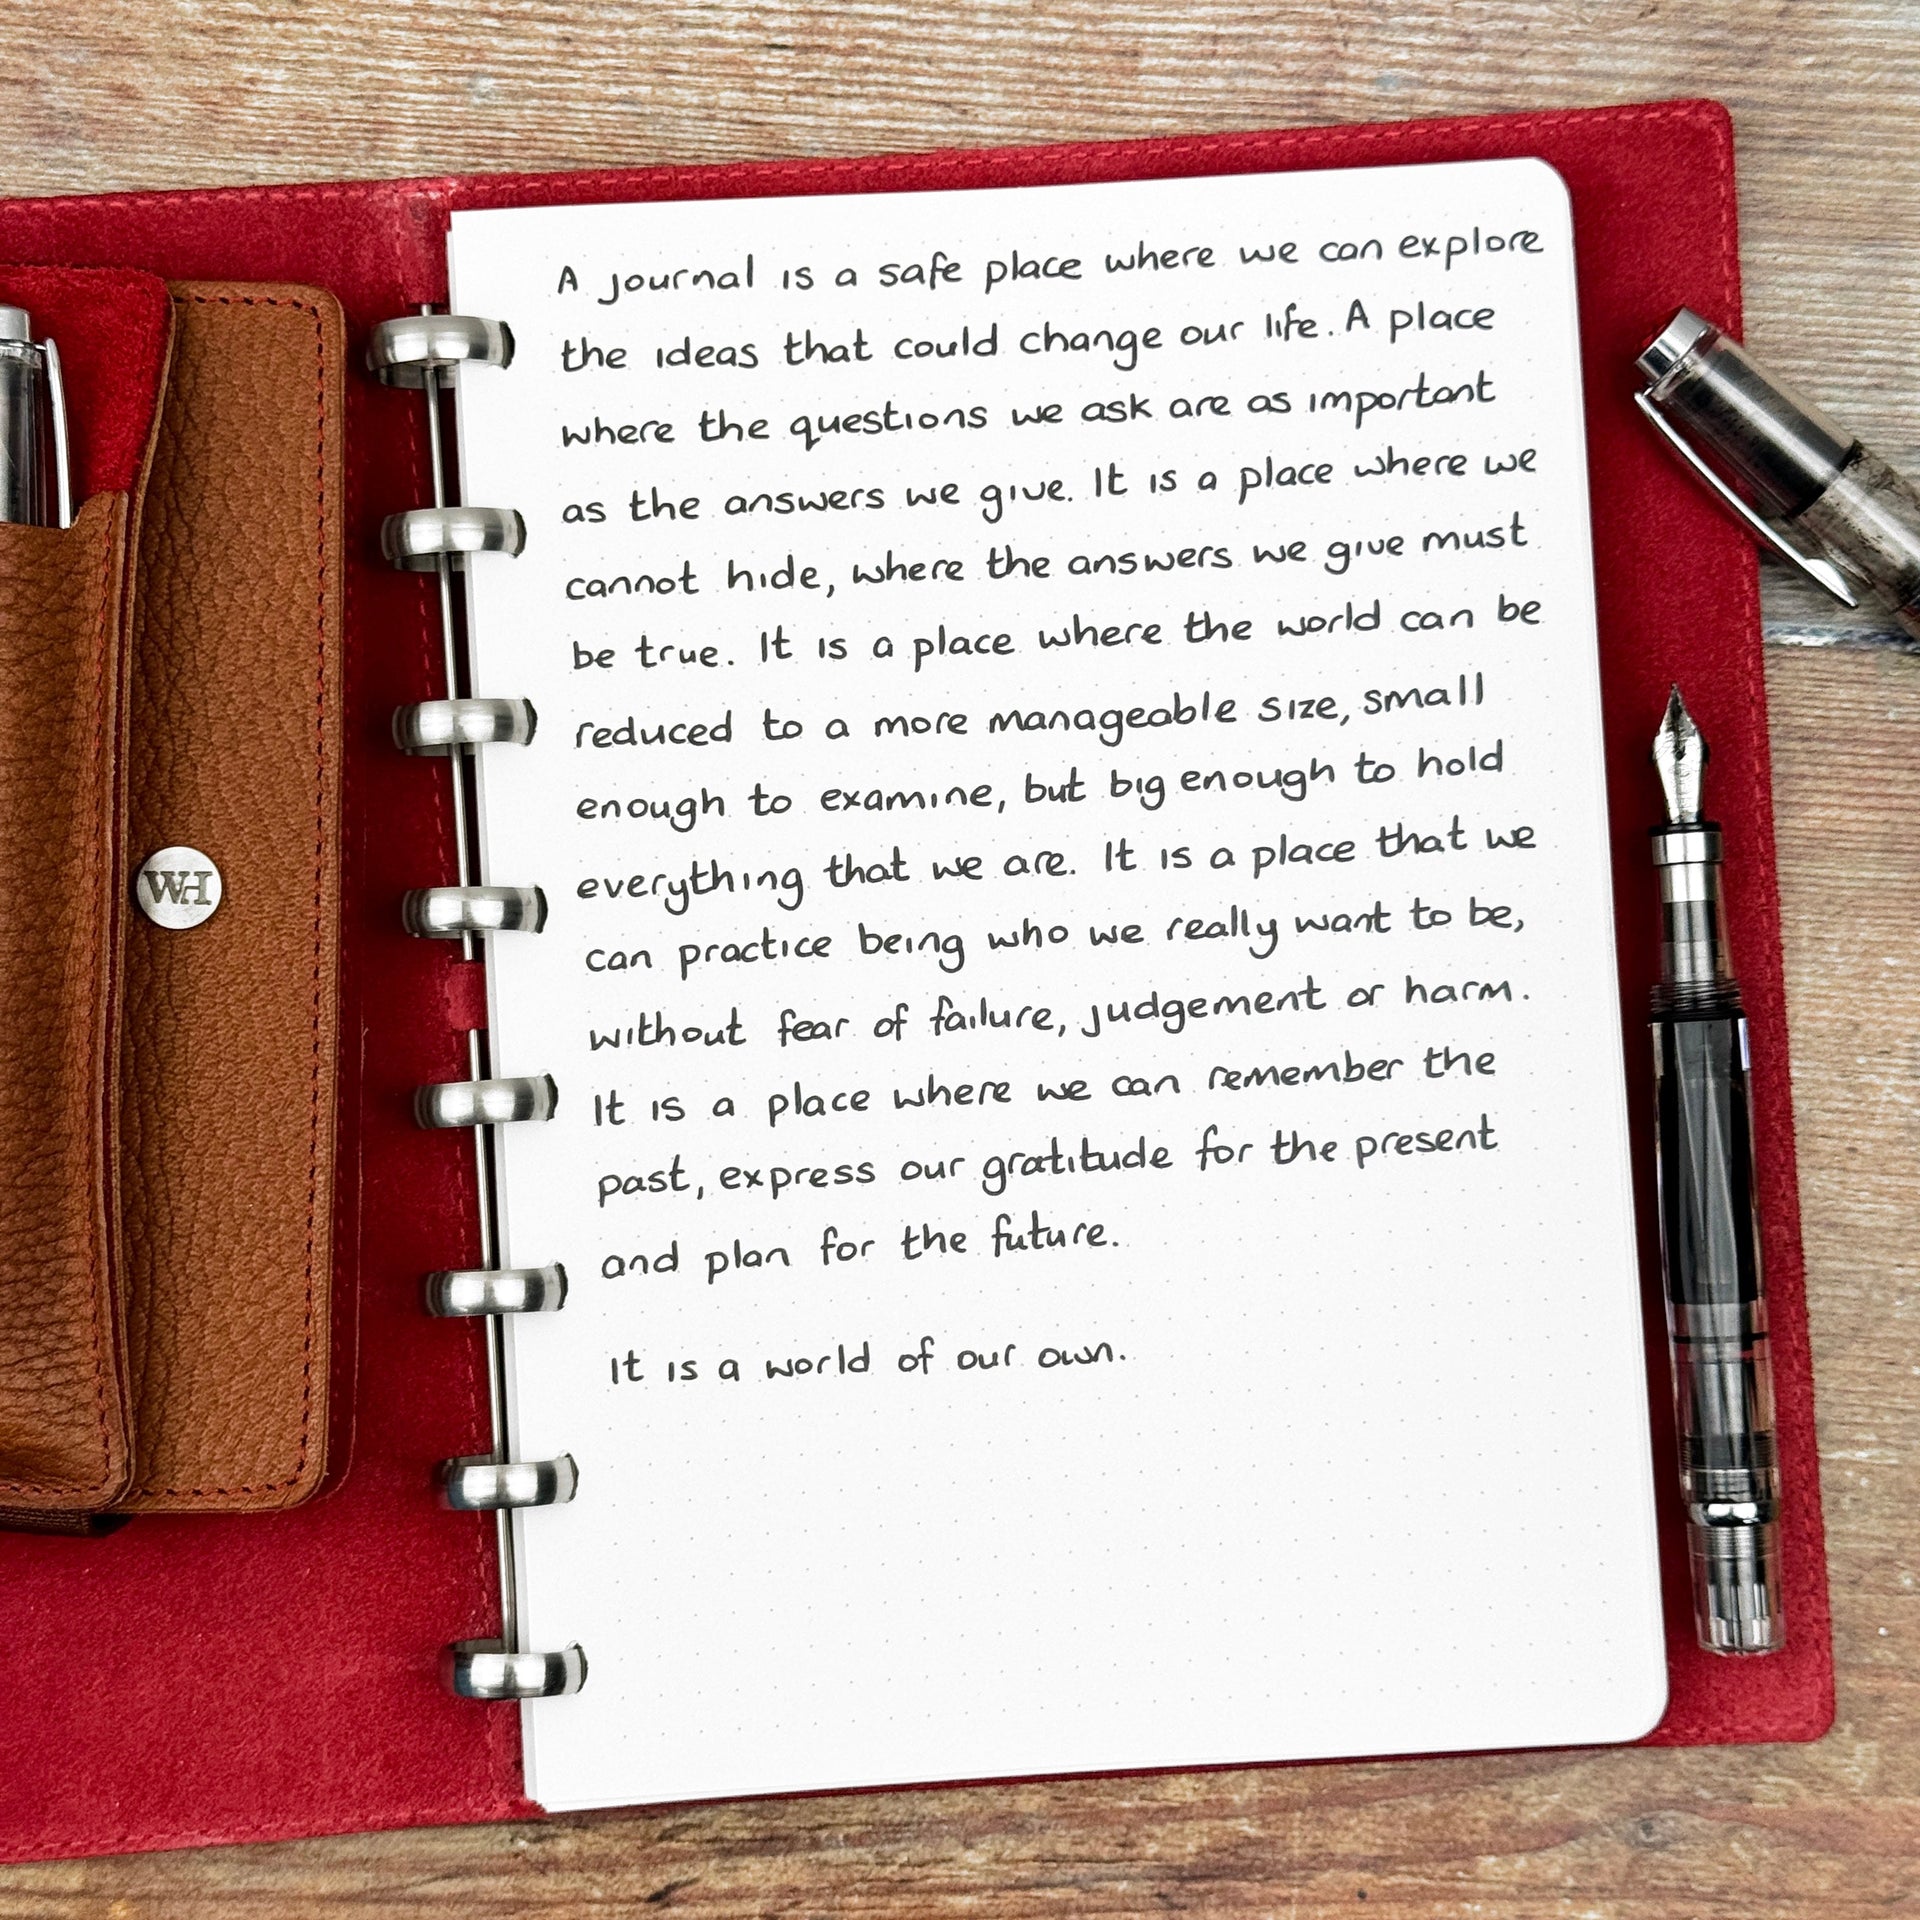 WH
A journal is a safe place where we can explore
the ideas that could change our life. A place
where the questions we ask are as important
as the answers we give. It is a place where we
cannot hide, where the answers we give must
be true. It is a place where the world can be
reduced to a more manageable size, small
enough to examine, but big enough to hold
everything that we are. It is a place that we
can practice being who we really want to be,
without fear of failure, judgement or harm.
It is a place where we can remember the
past, express our gratitude for the present
and plan for the future.
It is a world of our own.